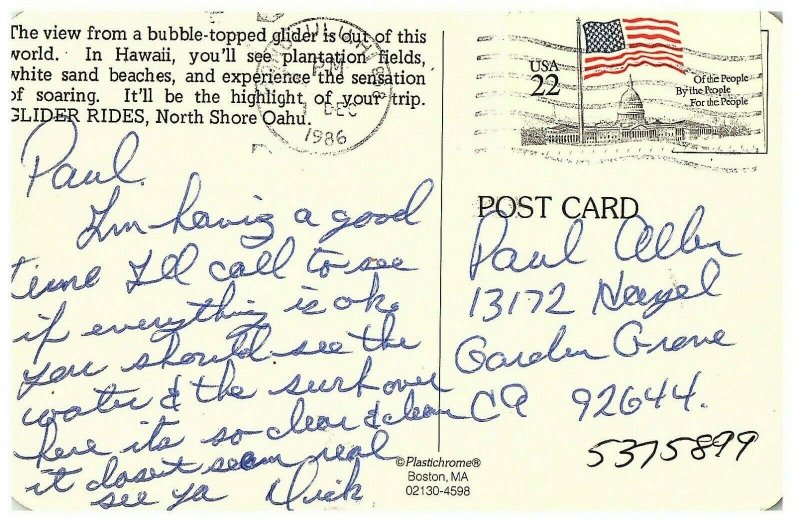 The view from a bubble-topped glider is out of this
world. In Hawaii, you'll see plantation fields,
white sand beaches, and experience the sensation
of soaring. It'll be the highlight of your trip.
GLIDER RIDES, North Shore Oahu.
HONOLULU HI
PM
DEC
1986
USA
22
Of the People
By the People
For the People
Paul.
I'm having a good
time I'll call to see
if everything is ok.
you should see the
water & the surf over
here its so clear & clean
it doset seam real
see ya Dick
POST CARD
Paul Allen
13172 Hazel
Garden Grove
CA 92644.
5375899
©Plastichrome®
Boston, MA
02130-4598